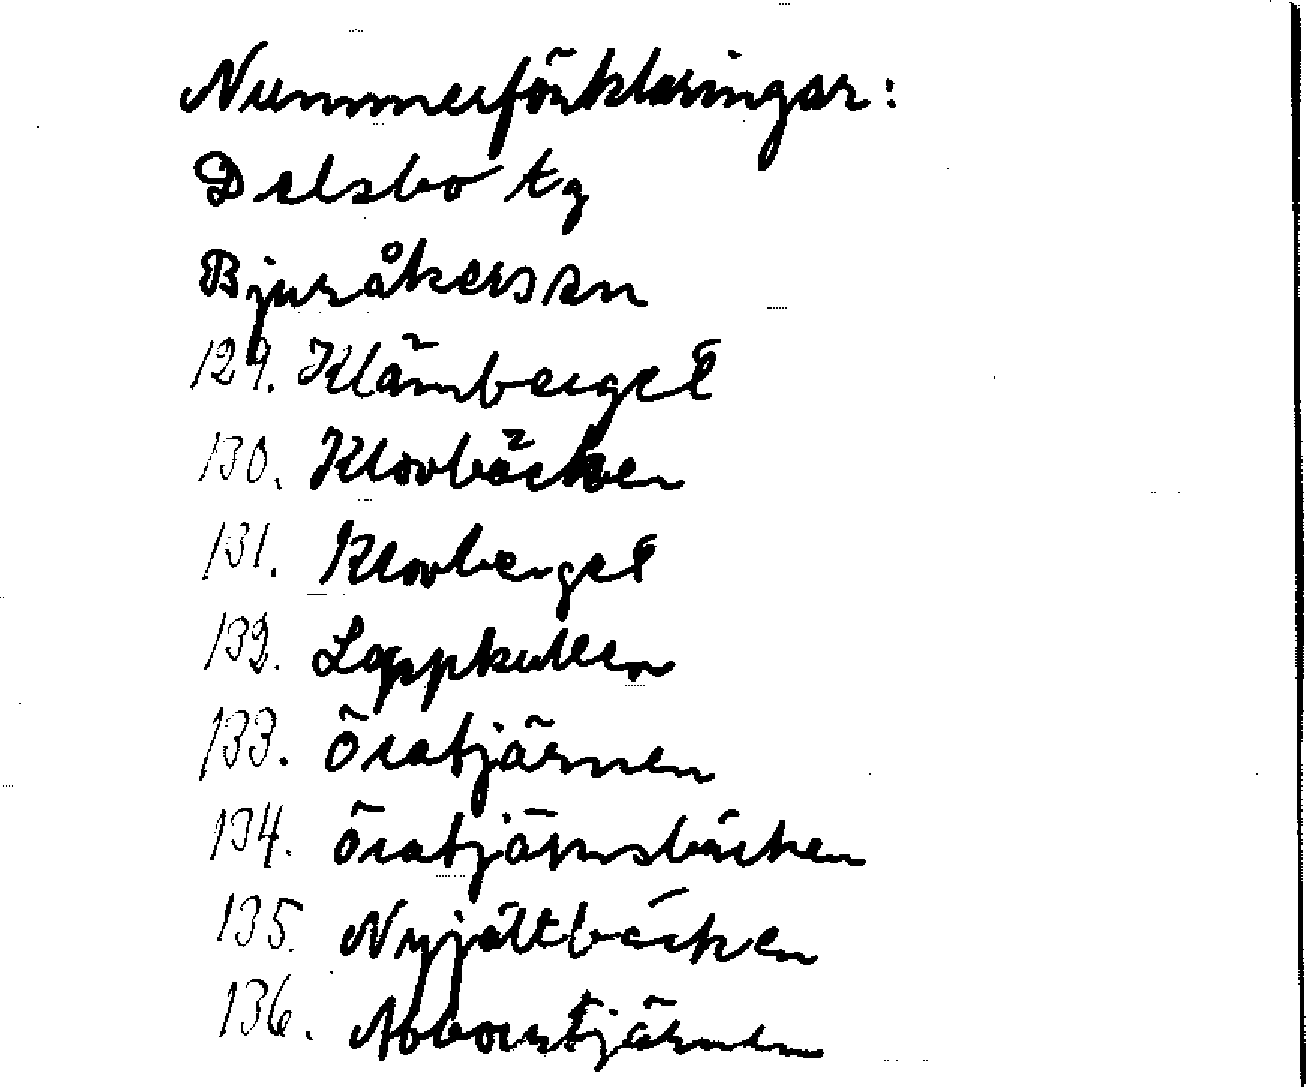 Nummerförklaringar:
Delsbo tg
Bjuråkers sn
129. Klämberget
130. Klovbäcken
131. Klovberget
132. Loppkullen
133. Öratjärnen
134. Öratjärnsbäcken
135. Nyjättbäcken
136. Abborrtjärnen